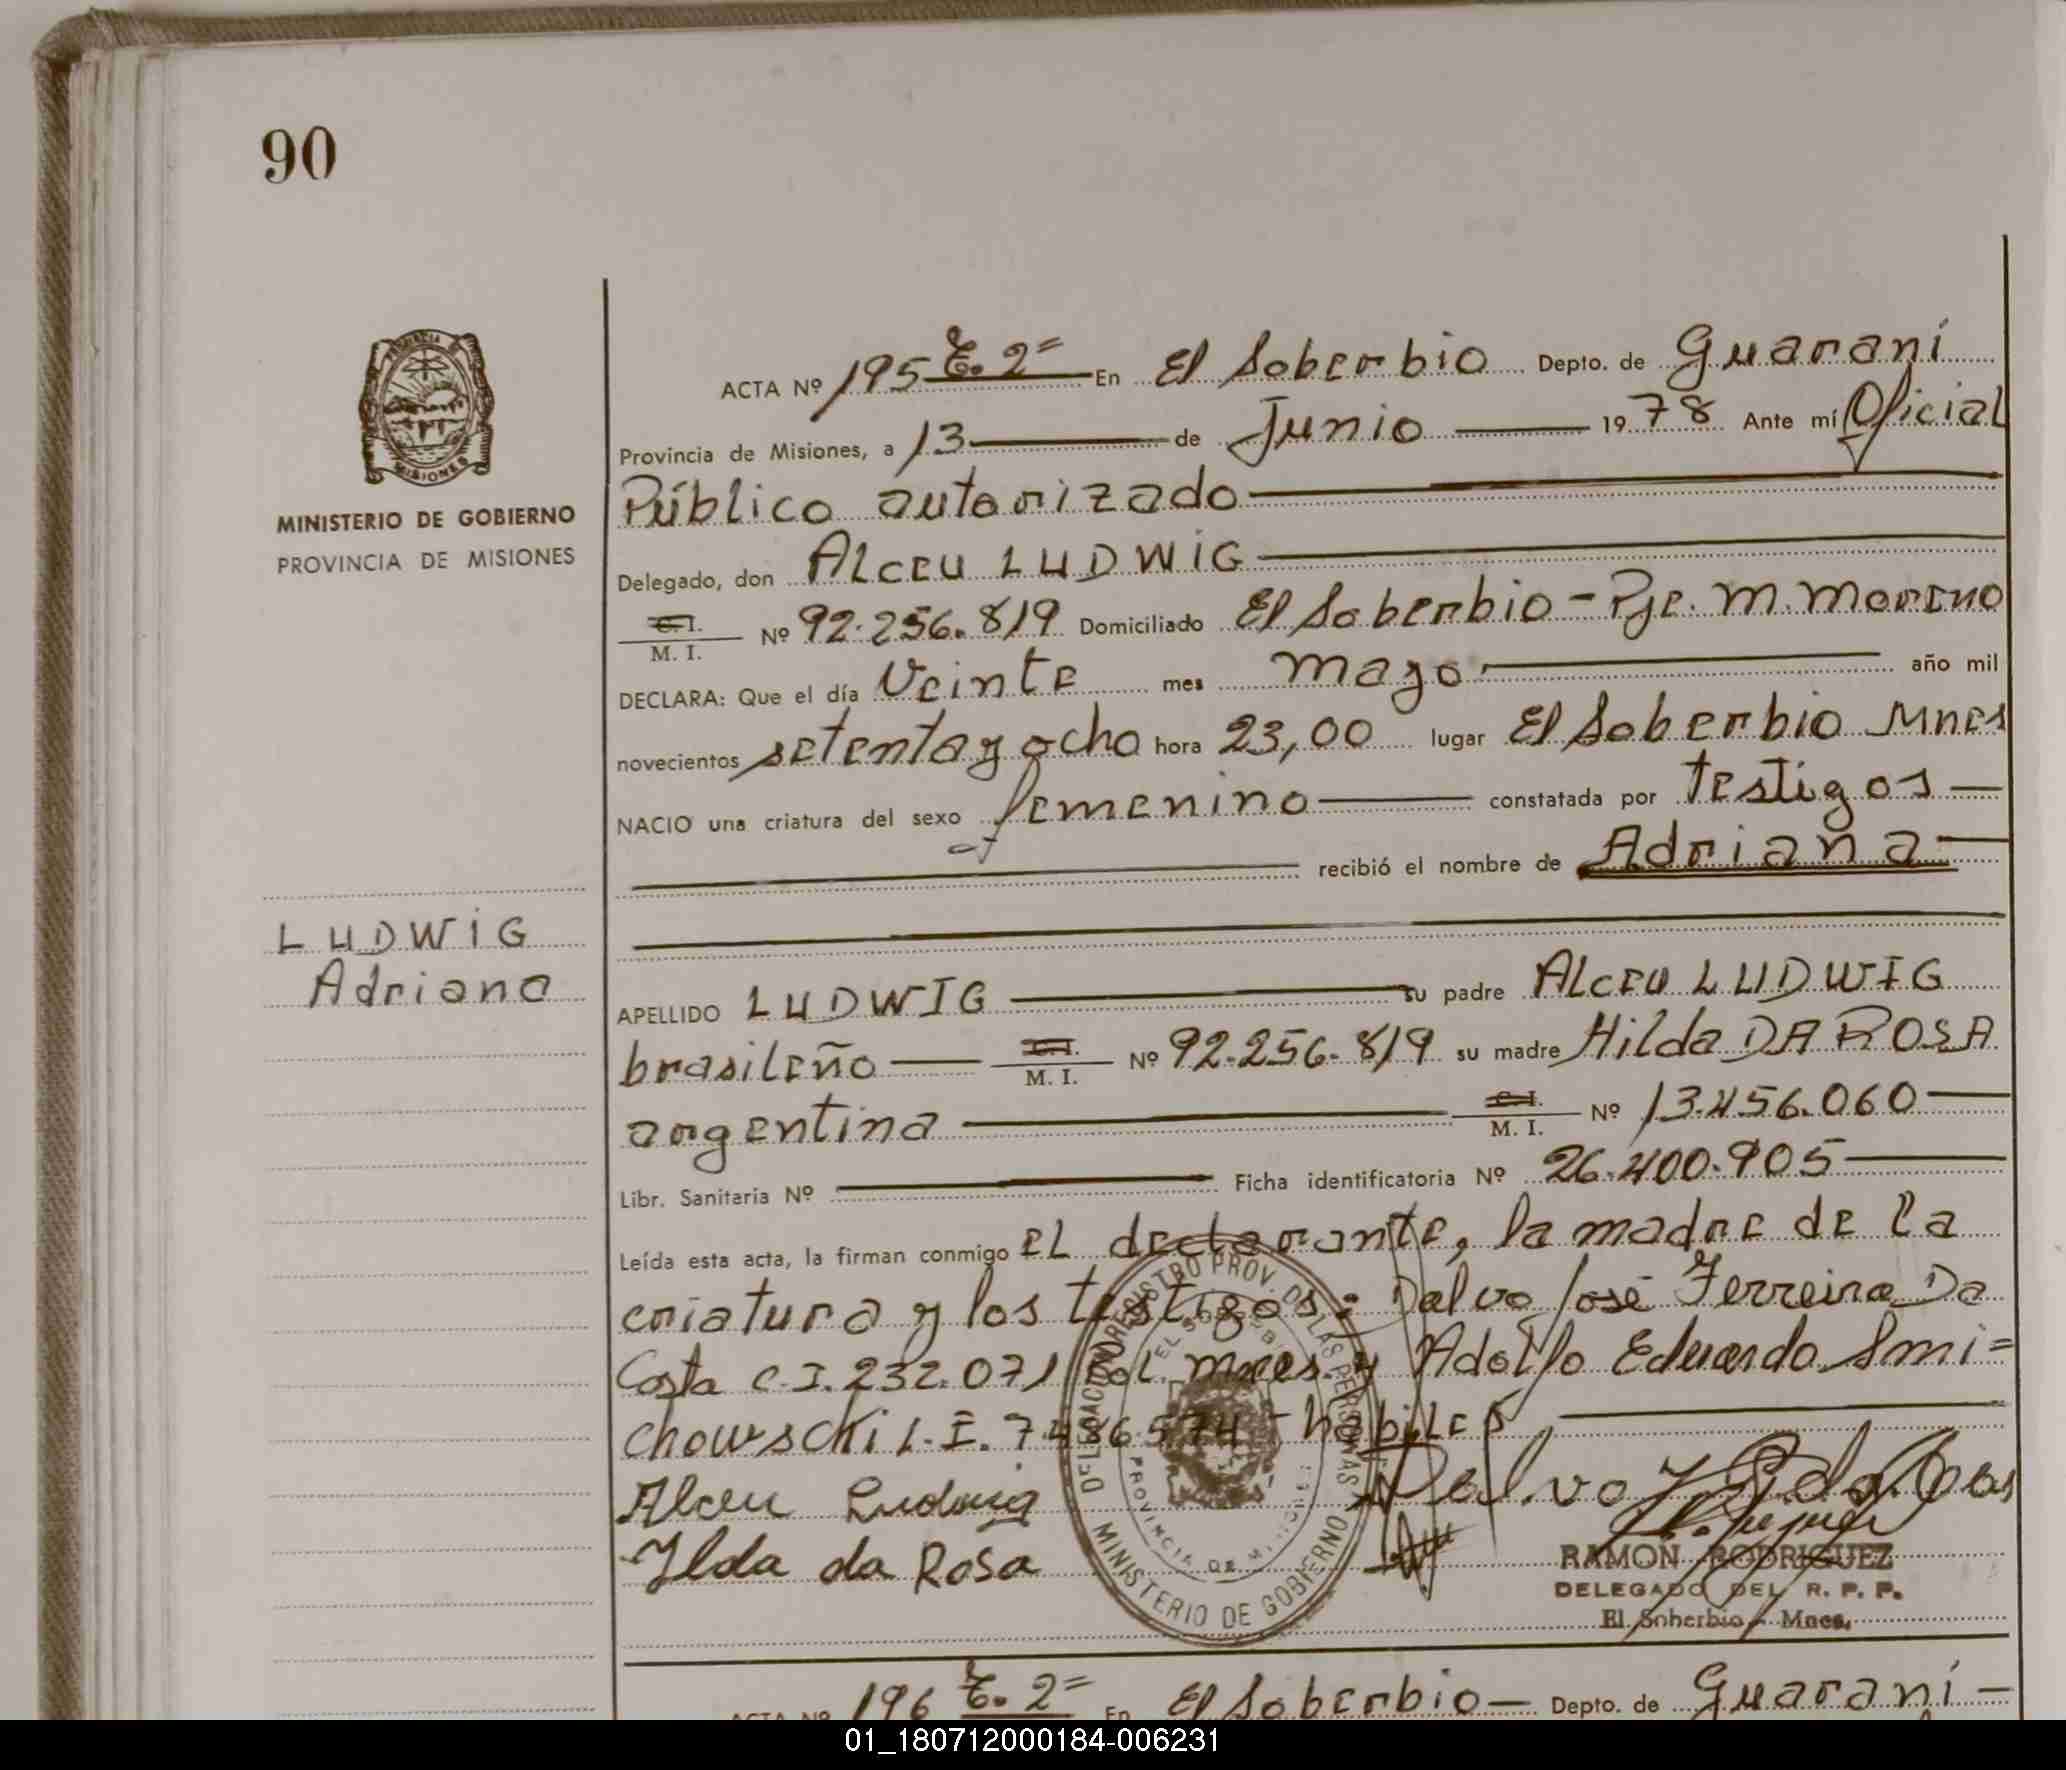 90
PROVINCIA DE
MISIONES
MINISTERIO DE GOBIERNO
PROVINCIA DE MISIONES
LUDWiG
Adriana
ACTA Nº 195 T. 2º En El Soberbio Depto. de Guaraní
Provincia de Misiones, a 13 de Junio 1978 Ante mí Oficial
Público autorizado
Delegado, don Alceu LUDWiG
C. I. / M. I. Nº 92.256.819 Domiciliado El Soberbio - Pje. M. Moreno
DECLARA: Que el día Veinte mes mayo año mil
novecientos setenta y ocho hora 23,00 lugar El Soberbio Mnes
NACIO una criatura del sexo femenino constatada por testigos
recibió el nombre de Adriana
APELLIDO LUDWIG su padre Alceu LUDWIG
brasileño C. I. / M. I. Nº 92.256.819 su madre Hilda DA ROSA
argentina C. I. / M. I. Nº 13.456.060
Libr. Sanitaria Nº Ficha identificatoria Nº 26.400.905
Leída esta acta, la firman conmigo el declarante, la madre de la
criatura y los testigos: Dalvo José Ferreira Da
Costa C.I. 232.071 Pol. Mnes. y Adolfo Eduardo Smi=
chowscki L.E. 7.486.574 - hábiles
Alceu Ludwig
Ilda da Rosa
Dalvo J. F. da Cos
DELEGACION REGISTRO PROV. DE LAS PERSONAS
EL SOBERBIO
PROVINCIA DE MISIONES
MINISTERIO DE GOBIERNO
RAMON RODRIGUEZ
DELEGADO DEL R. P. P.
El Soberbio - Mnes.
ACTA Nº 196 T. 2º En El Soberbio Depto. de Guaraní
01_180712000184-006231